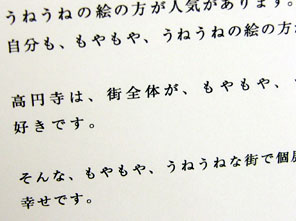 うねうねの絵の方が人気があります。
自分も、もやもや、うねうねの絵の方が
高円寺は、街全体が、もやもや、
好きです。
そんな、もやもや、うねうねな街で個
幸せです。